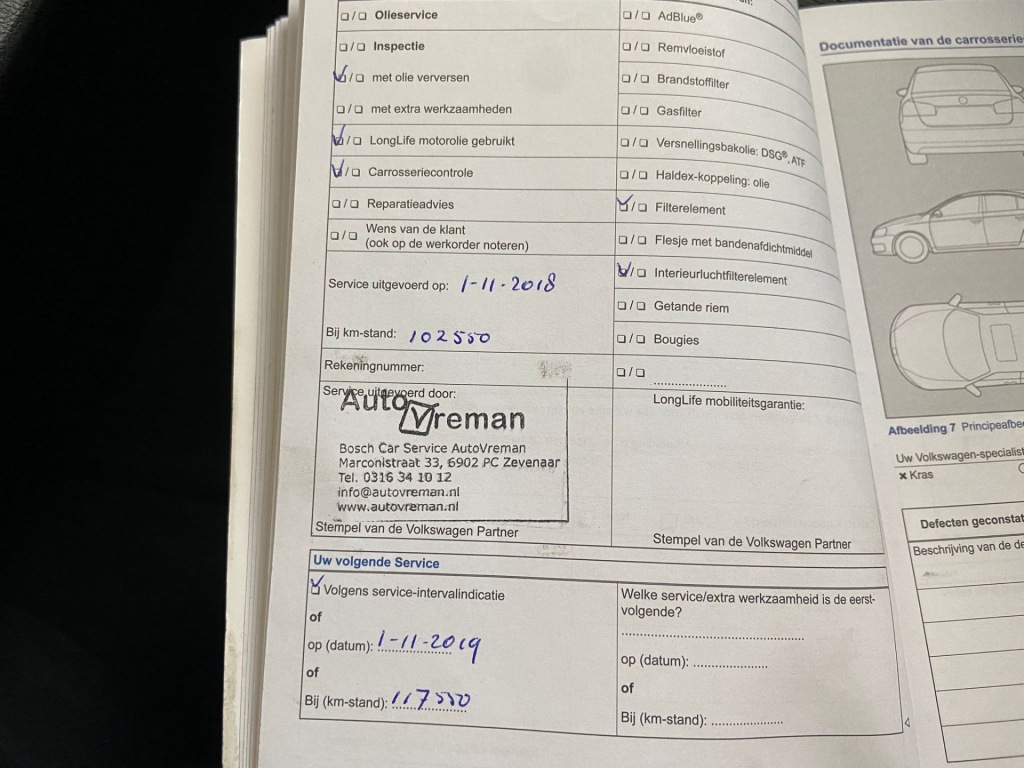 ☐/☐ Olieservice
☐/☐ Inspectie
☑/☐ met olie verversen
☐/☐ met extra werkzaamheden
☑/☐ LongLife motorolie gebruikt
☑/☐ Carrosseriecontrole
☐/☐ Reparatieadvies
☐/☐ Wens van de klant
(ook op de werkorder noteren)
Service uitgevoerd op: 1-11-2018
Bij km-stand: 102550
Rekeningnummer:
Service uitgevoerd door:
Auto Vreman
Bosch Car Service AutoVreman
Marconistraat 33, 6902 PC Zevenaar
Tel. 0316 34 10 12
info@autovreman.nl
www.autovreman.nl
Stempel van de Volkswagen Partner
☐/☐ AdBlue®
☐/☐ Remvloeistof
☐/☐ Brandstoffilter
☐/☐ Gasfilter
☐/☐ Versnellingsbakolie: DSG®, ATF
☐/☐ Haldex-koppeling: olie
☑/☐ Filterelement
☐/☐ Flesje met bandenafdichtmiddel
☑/☐ Interieurluchtfilterelement
☐/☐ Getande riem
☐/☐ Bougies
☐/☐ ......................
LongLife mobiliteitsgarantie:
Stempel van de Volkswagen Partner
Uw volgende Service
☑ Volgens service-intervalindicatie
of
op (datum): 1-11-2019
of
Bij (km-stand): 117550
Welke service/extra werkzaamheid is de eerst-
volgende?
......................................................
op (datum): ......................
of
Bij (km-stand): ......................
Documentatie van de carrosserie
Afbeelding 7 Principeafbe
Uw Volkswagen-specialist
x Kras
Defecten geconstat
Beschrijving van de de